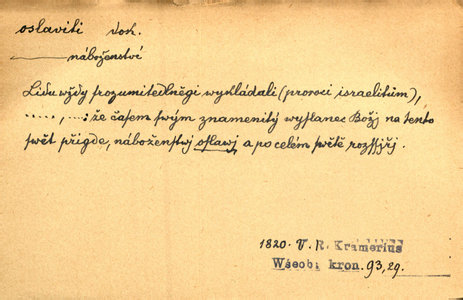 oslaviti dok.
—— náboženství
Lidu wždy srozumitedlněgi wykládali (proroci israelitům),
....., ...: že časem swým znamenitý wyslanec Božj na tento
swět přigde, náboženstwj oslawj a po celém swětě rozssjřj.
1820. V. R. Kramerius
Wšeob. kron. 93, 29.